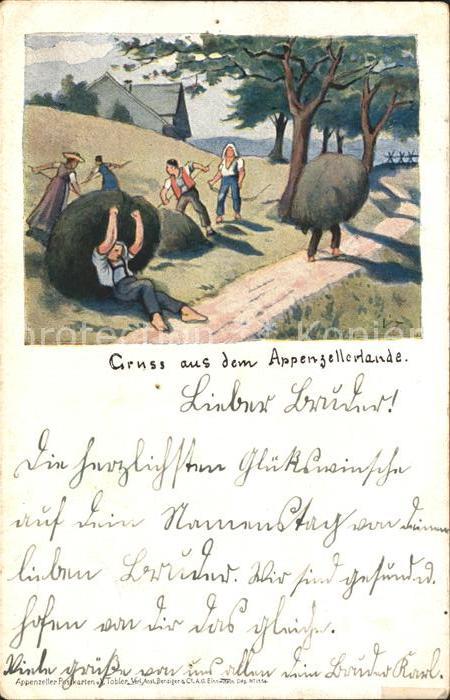 Gruss aus dem Appenzellerlande.
Lieber Bruder!
Die herzlichsten Glükswinsche
auf dein Namenstag von deinem
lieben Bruder. Wir sind gesund u.
hofen von dir das gleiche.
Viele grüße von uns allen dein Bruder Karl.
Appenzeller Postkarten v. Tobler. Verl. Anst. Benziger & Co. A.G. Einsiedeln